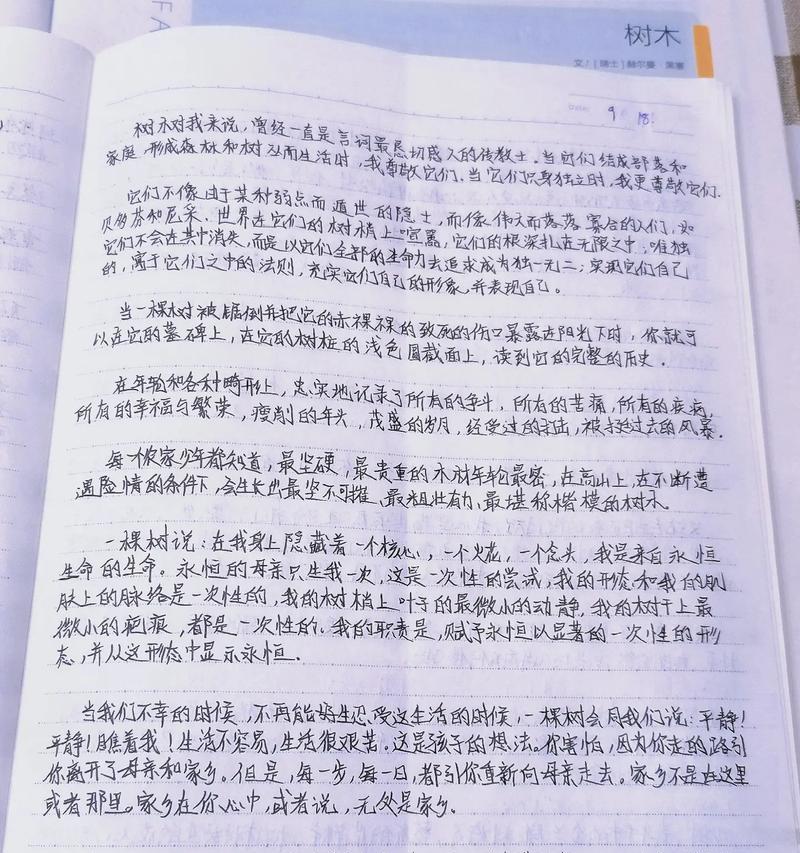 FA
树木
文/[瑞士]赫尔曼·黑塞
Date: 9 18
树木对我来说，曾经一直是言词最恳切感人的传教士。当它们结成部落和
家庭，形成森林和树丛而生活时，我尊敬它们。当它们只身独立时，我更尊敬它们。
它们不像由于某种弱点而遁世的隐士，而像伟大而落落寡合的人们，如
贝多芬和尼采。世界在它们的树梢上喧嚣，它们的根深扎在无限之中，唯独
它们不会在其中消失，而是以它们全部的生命力去追求成为独一无二；实现它们自己
的，寓于它们之中的法则，充实它们自己的形象，并表现自己。
当一棵树被锯倒并把它的赤裸裸的致死的伤口暴露在阳光下时，你就可
以在它的墓碑上，在它的树桩的浅色圆截面上，读到它的完整的历史。
在年轮和各种畸形上，忠实地记录了所有的争斗，所有的苦痛，所有的疾病，
所有的幸福与繁荣，瘦削的年头，茂盛的岁月，经受过的打击，被挺过去的风暴。
每一个农家少年都知道，最坚硬，最贵重的木材年轮最密，在高山上，在不断遭
遇险情的条件下，会生长出最坚不可摧、最粗壮有力、最堪称楷模的树木。
一棵树说：在我身上隐藏着一个核心，一个火花，一个念头，我是来自永恒
生命的生命。永恒的母亲只生我一次，这是一次性的尝试，我的形态和我的肌
肤上的脉络是一次性的，我的树梢上叶子的最微小的动静，我的树干上最
微小的疤痕，都是一次性的。我的职责是，赋予永恒以显著的一次性的形
态，并从这形态中显示永恒。
当我们不幸的时候，不再能好生忍受这生活的时候，一棵树会同我们说：平静！
平静！瞧着我！生活不容易，生活很艰苦。这是孩子的想法。你害怕，因为你走的路引
你离开了母亲和家乡。但是，每一步，每一日，都引你重新向母亲走去。家乡不是在这里
或者那里。家乡在你心中，或者说，无处是家乡。